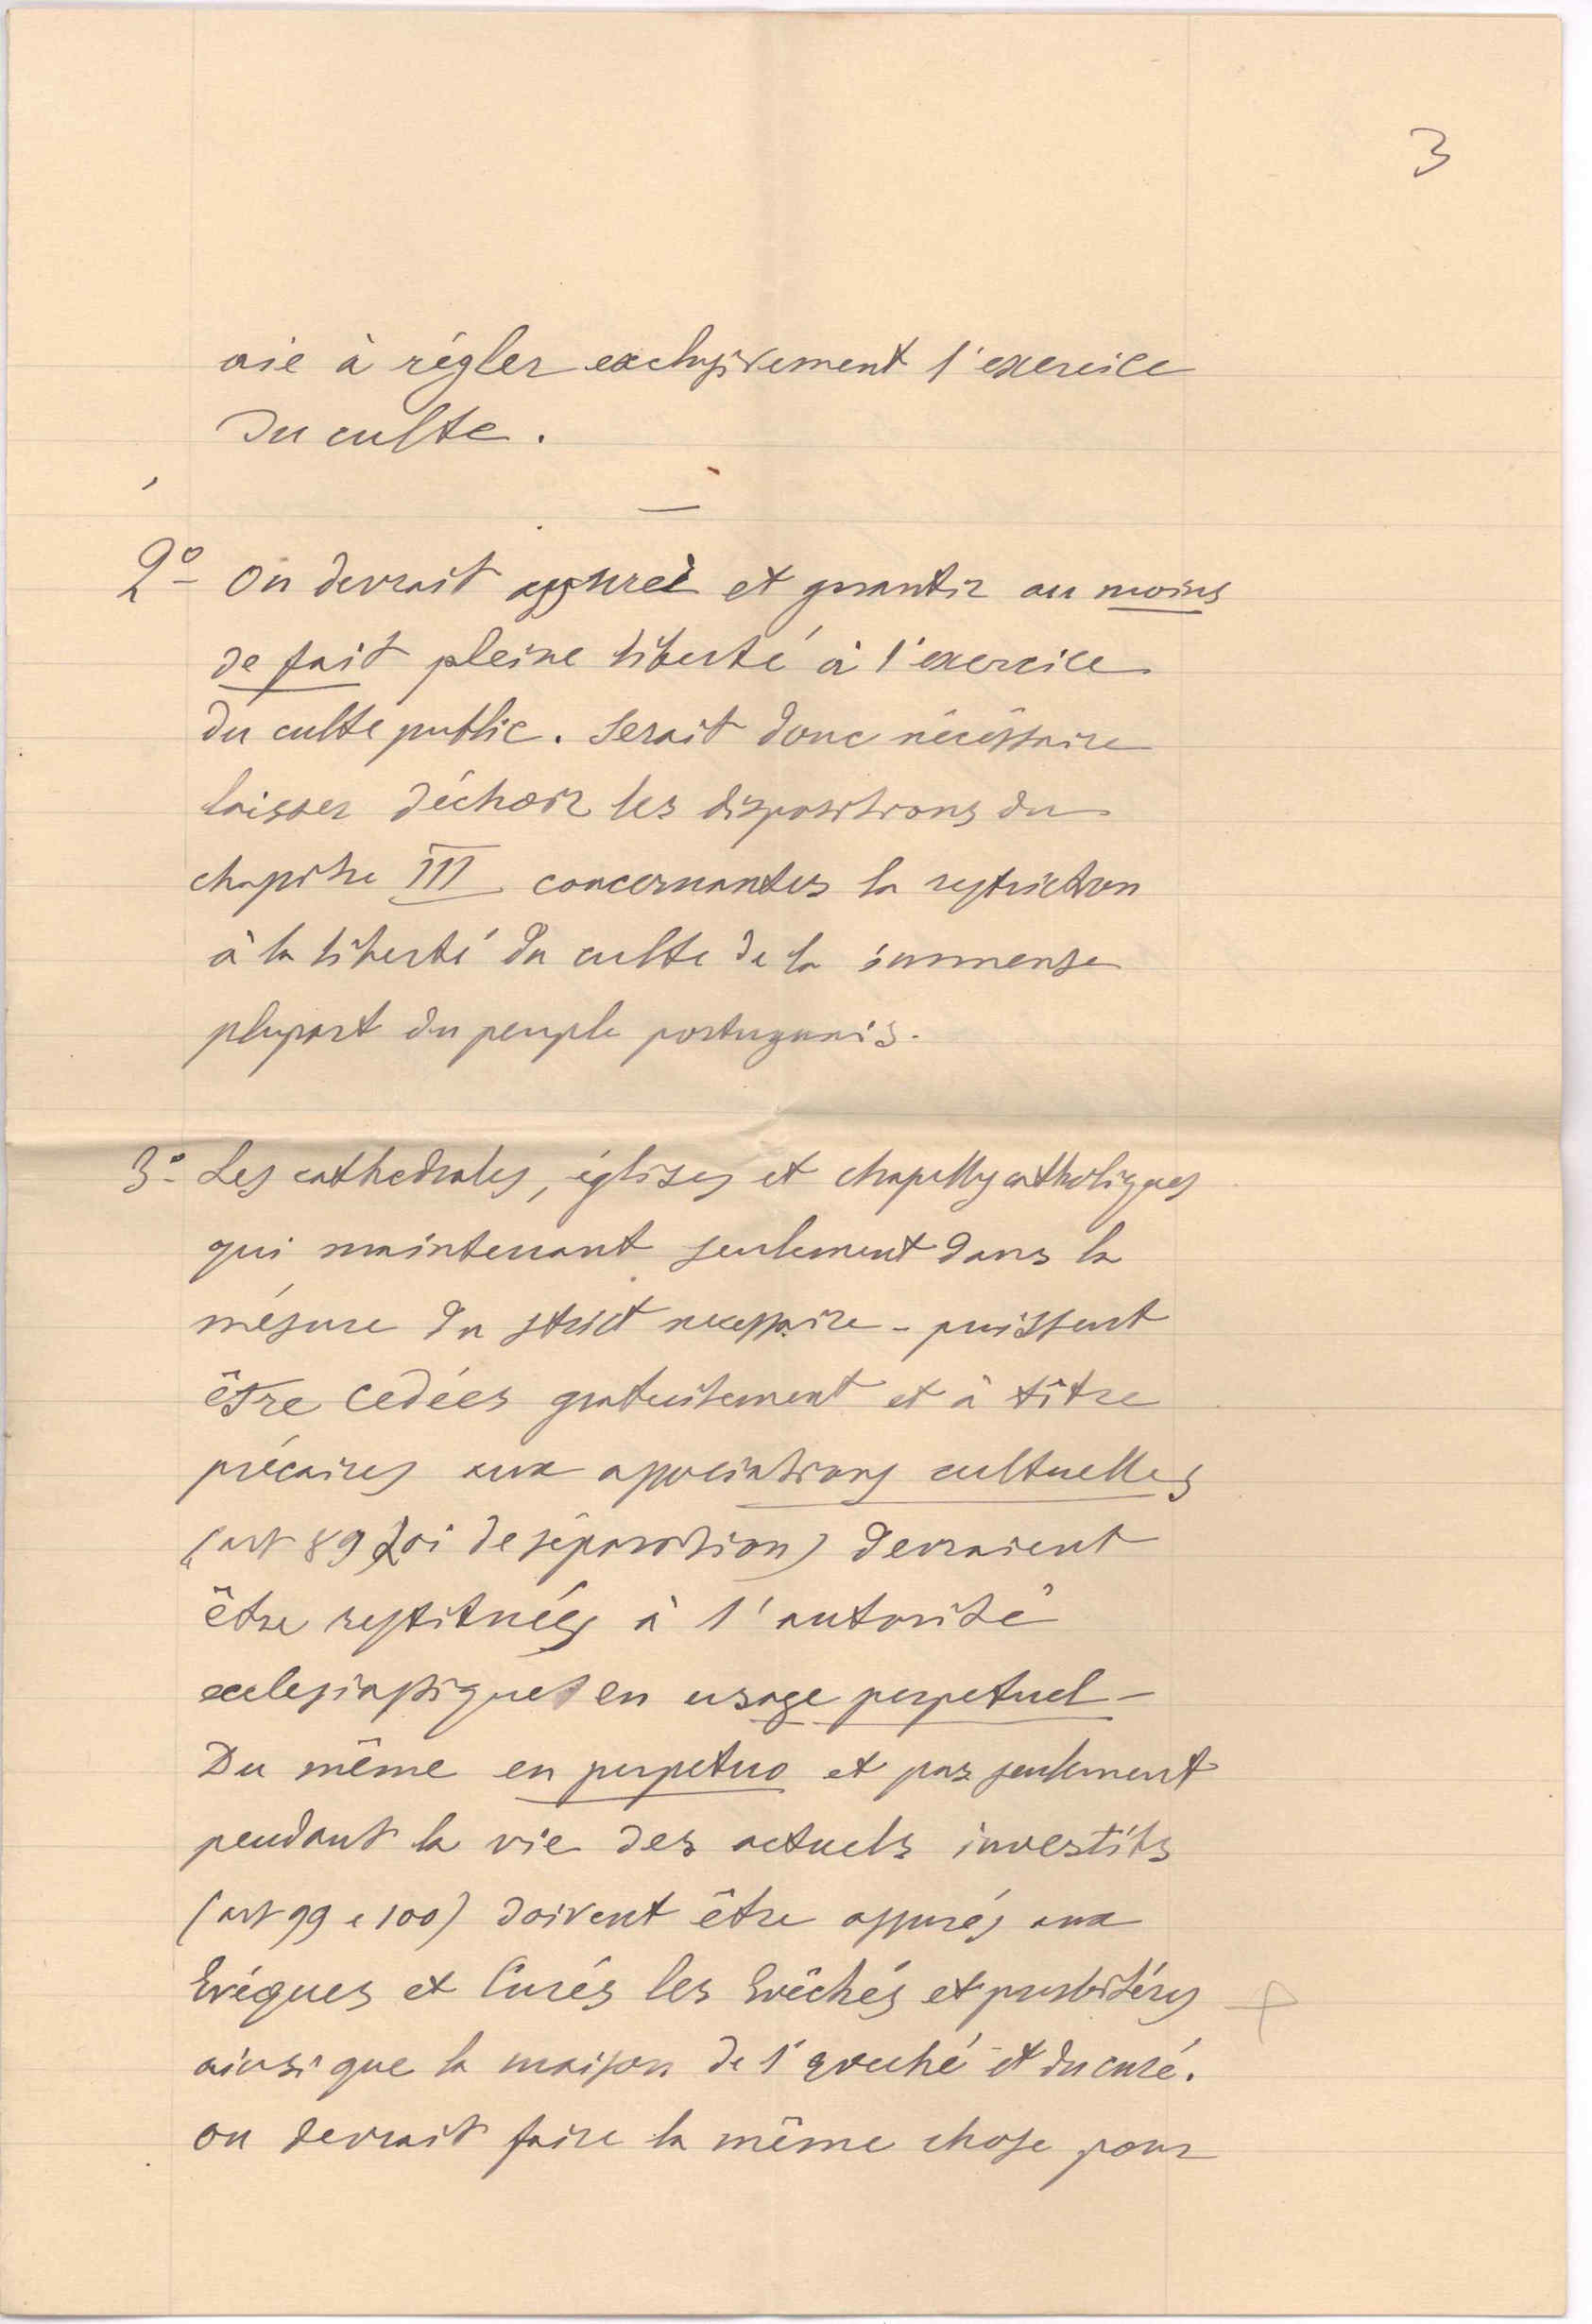 3
aie à régler exclusivement l'exercice
du culte.
—
2º- On devrait assurer et guarantir au moins
de fait pleine liberté à l'exercice
du culte public. Serait donc nécéssaire
laisser déchoir les dispositions du
chapitre III concernantes la restriction
à la liberté du culte de la immense
plupart du peuple portuguais.
3º- Les cathedrales, églises et chapelles catholiques
qui maintenant seulement dans la
mésure du strict necessaire - puissent
être cedées gratuitement et à titre
précaires aux associations cultuelles
(art 89 Loi de séparation) devraient
être restituées à l'autorité
ecclesiastique en usage perpetuel -
Du même en perpetuo et pas seulement
pendant la vie des actuels investits
(art 99 e 100) doivent être assurés aux
Evéques et Curés les Evêchés et presbitérés
ainsi que la maison de l'eveché et du curé.
On devrait faire la même chose pour